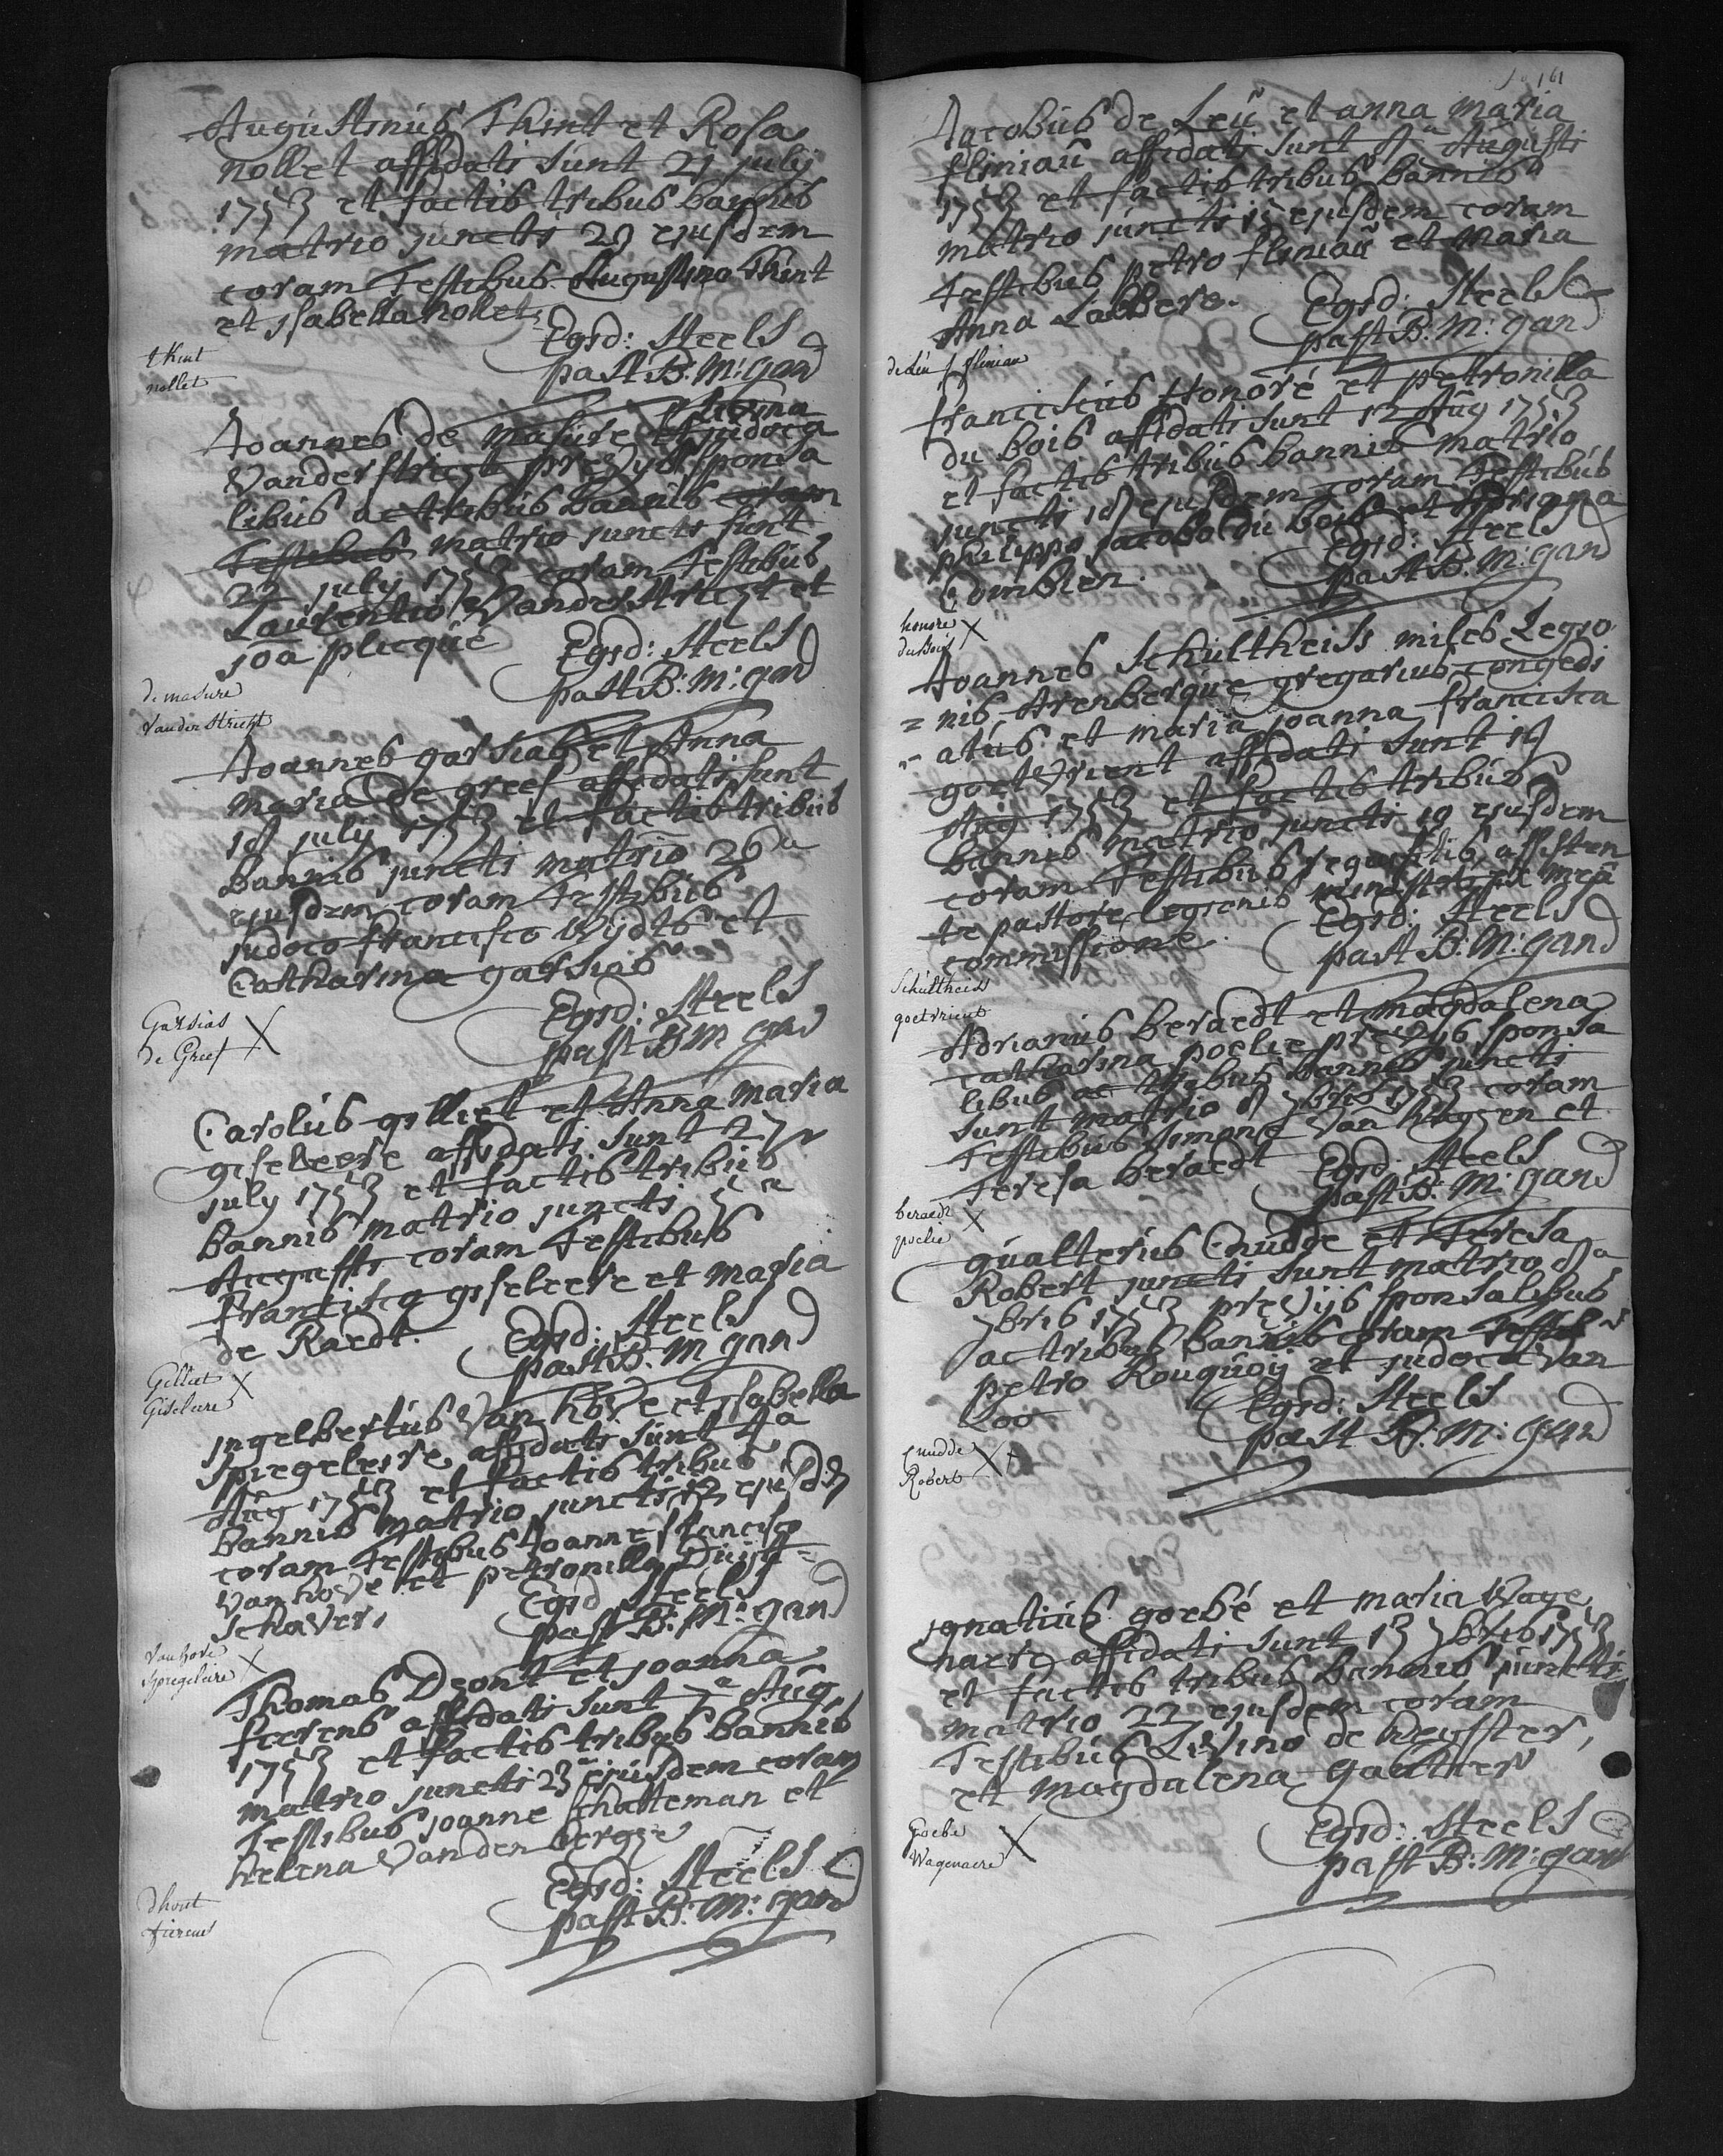 Augustinus Thint et Rosa
nollet affidati sunt 21 july
1753 et factis tribus bannis
matrio juncti 29 ejusdem
coram testibus Augustino Thint
et jsabella nollet
Egid: Steels
past B: M: gand
thint
nollet
Joannes de masure et judoca
Vanderstricht previjs sponsa
libus ac tribus bannis coram
testibus matrio juncti sunt
22 july 1753 coram testibus
Laurentio Vanderstricht et
joa plecque
Egid: Steels
past B: M: gand
de masure
Vander Stricht
Joannes garsias et Anna
maria De greef affidati sunt
july 1753 et factis tribus
bannis juncti matrio 26a
ejusdem coram testibus
judoco francisco Wijdts et
Catharina garsias
Egid: Steels
past B M gand
Garsias
de Greef X
Carolus gilliet et Anna maria
giseleere affidati sunt
july 1753 et factis tribus
bannis matrio juncti 5a
Augusti coram testibus
Francisco giseleere et maria
de Raedt.
Egid: Steels
past B: M gand
Gilliet X
Giseleere
jngelbertus Van hove et jsabella
Spiegeleire affidati sunt 4a
Aug 1753 et factis tribus
bannis matrio juncti 12 ejusd
coram testibus Joanne francisco
Van hove et petronilla Duijt=
schaver
Egid Steels
past B: M: gand
Van hove X
Spiegeleire
Thomas Deont et joanna
fierens affidati sunt 7a Aug
1753 et factis tribus bannis
matrio juncti 23 ejusdem coram
testibus joanne schatteman et
helena Vanden berghe
Egid: Steels
past B: M: gand
dhont
fierens
161
Jacobus de Leu et anna maria
fliniau affidati sunt Augusti
1753 et factis tribus bannis
matrio juncti 15 ejusdem coram
testibus petro fliniau et maria
Anna Labbere.
Egid: Steels
past B: M: gand
de Leu / fliniau
franciscus Honoré et petronilla
du bois affidati sunt 12 Aug 1753
et factis tribus bannis matrio
juncti ejusdem coram testibus
philippo jacobo du bois et
Comblen.
Egid: Steels
past B: M: gand
honore X
du Bois
Joannes Schultheiss miles Legio
=nis Arenberque gregarius congedi
=atus et maria joanna francisca
goetvrient affidati sunt
Aug 1753 et factis tribus
bannis matrio juncti 19 ejusdem
coram testibus requisitis assisten
te pastore legionis ministro ex mea
commissione.
Egid: Steels
past B: M: gand
Schultheiss
goetvrient
Adrianus beraedt et magdalena
catharina poelie previjs sponsa
libus ac tribus bannis juncti
sunt matrio 7bris 1753 coram
testibus simone Van en et
teresa beraedt
Egid: Steels
past B: M: gand
beraedt X
poelie
gualterus Cnudde et teresa
Robert juncti sunt matrio
7bris 1753 previjs sponsalibus
ac tribus bannis coram
petro Rouquoij et judoca Van
Loo
Egid: Steels
past B: M: gand
Cnudde X+
Robert
jgnatius goebé et maria Wage
naere affidati sunt 13 7bris 1753
et factis tribus bannis juncti
matrio 22 ejusdem coram
testibus Livino de
et magdalena gauthier
Egid: Steels
past B: M: gand
Goebe X
Wagenaere